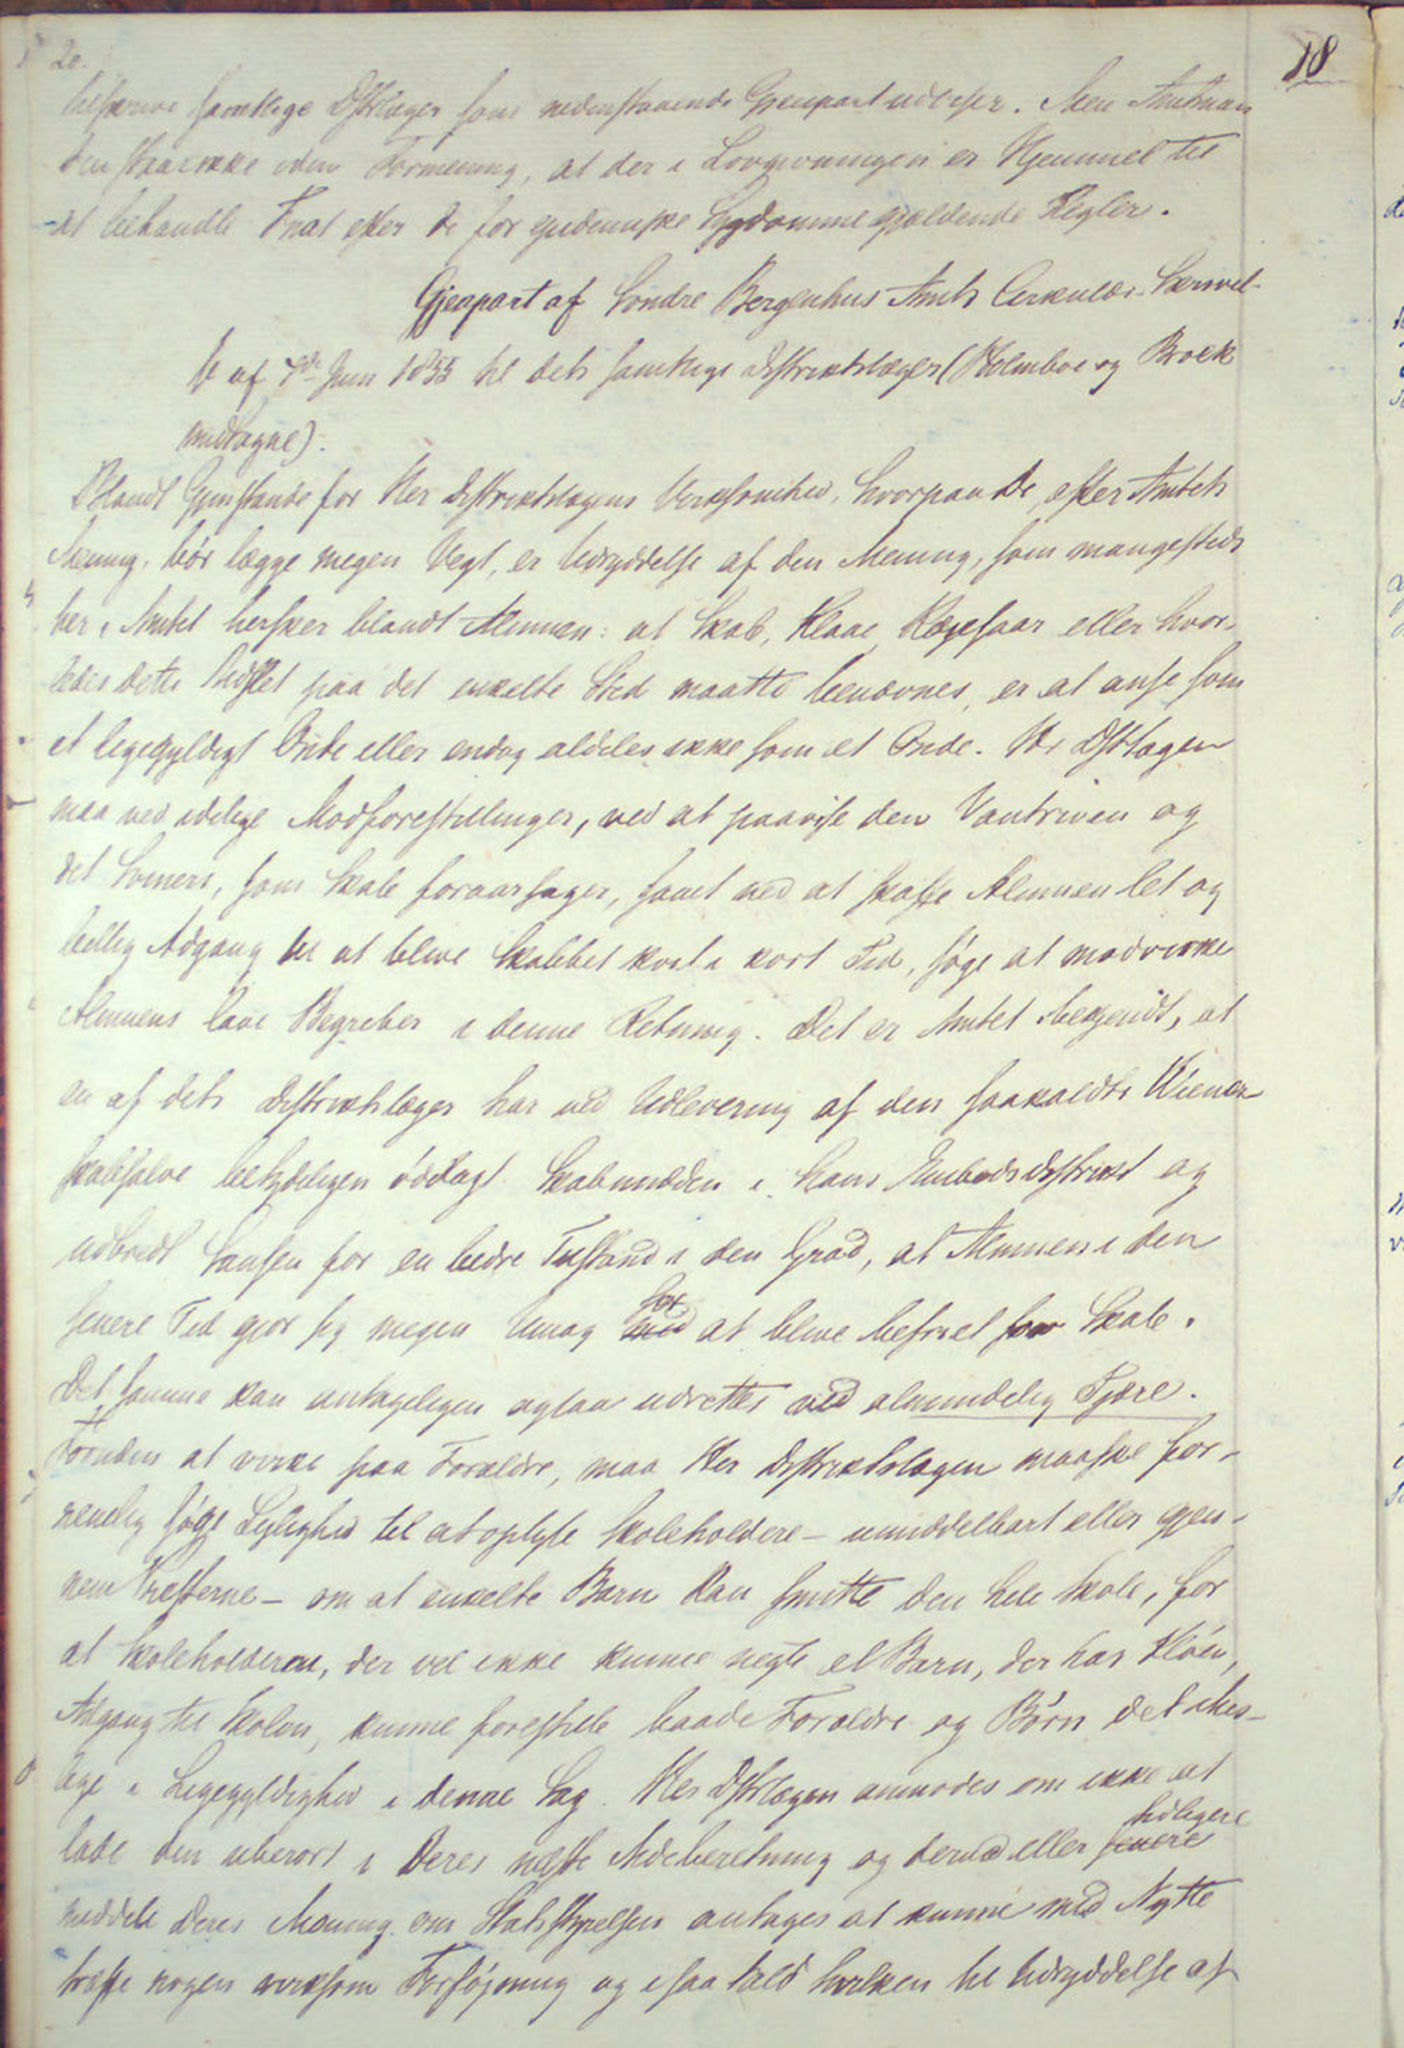 20.
18
tilskrive samtlige Dstrlæger som nedenstaaende Gjenpart udviser. Men Amtman-
den skal ikke uden Formening, at der i Lovgivningen er Hjemmel til
at behandle Fnat efter de for epidemiske Sygdomme gjældende Regler.
Gjenpart af Søndre Bergenhus Amts Cirkulær-Skrivel-
se af 7de Juni 1855 til dets samtlige Distriktslæger (Holmboe og Brock
undtagne).
Blandt Gjenstande for Her Distriktslægens Virksomhed, hvorpaa De, efter Amtets
Mening, bør lægge megen Vegt, er Udryddelse af den Mening, som mangesteds
her i Amtet hersker blandt Almuen: at Skab, Klaae, Kløesaar eller hvor-
ledes dette Udslet paa det enkelte Sted maatte benævnes, er at anse som
et ligegyldigt Onde eller endog aldeles ikke som et Onde. Hr Dstrlægen
maa ved idelige Modforestillinger, ved at paavise den Vantriven og
det Svineri, som Skab foraarsager, samt ved at skaffe Almuen let og
billig Adgang til at blive Skabbet kvit i kort Tid, søge at modvirke
Almuens lave Begreber i denne Retning. Det er Amtet bekjendt, at
en af dets Distriktslæger har ved Udlevering af den saakaldte Wiener-
skabsalve betydeligen ødelagt Skabmidden i hans Embedsdistrikt og
udbredt Sansen for en bedre Tilstand i den Grad, at Almuen i den
senere Tid gjør sig megen Umag med for at blive befriet for Skab.
Det samme kan antageligen ogsaa udrettes ved almindelig Tjære.
Foruden at virke paa Forældre, maa Her Distriktslægen maaske for-
nemlig søge Leilighed til at oplyse Skoleholdere – umiddelbart eller gjen-
nem Præsterne – om at enkelte Barn kan smitte den hele Skole, for
at Skoleholderen, der vel ikke kunne negte et Barn, der har Kløen,
Adgang til Skolen, kunne forestille baade Forældre og Børn det ikes-
lige i Ligegyldighed i denne Sag. Her Dstrlægen anmodes om ikke at
lade den uberørt i Deres næste Aarsberetning og derved eller senere tidligere
meddele Deres Mening om Statsstyrelsen antages at kunne med Nytte
træffe nogen virksom Forføjning og i saa Fald hvilken til Udryddelse af